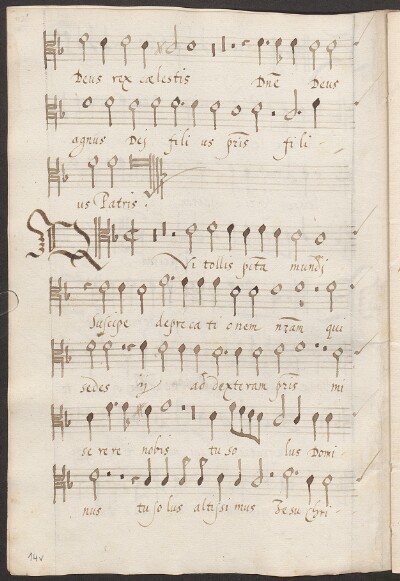 Deus rex cælestis Dñe Deus
agnus Dej fili us pr̃is fi li
us Patris.
Qvi tollis pctã mundj
Suscipe depreca ti onem nr̃am qui
sedes ij ad dexteram pr̃is mi
se re re nobis tu so lus Domi
nus tu so lus altissi mus Iesu chri
14v